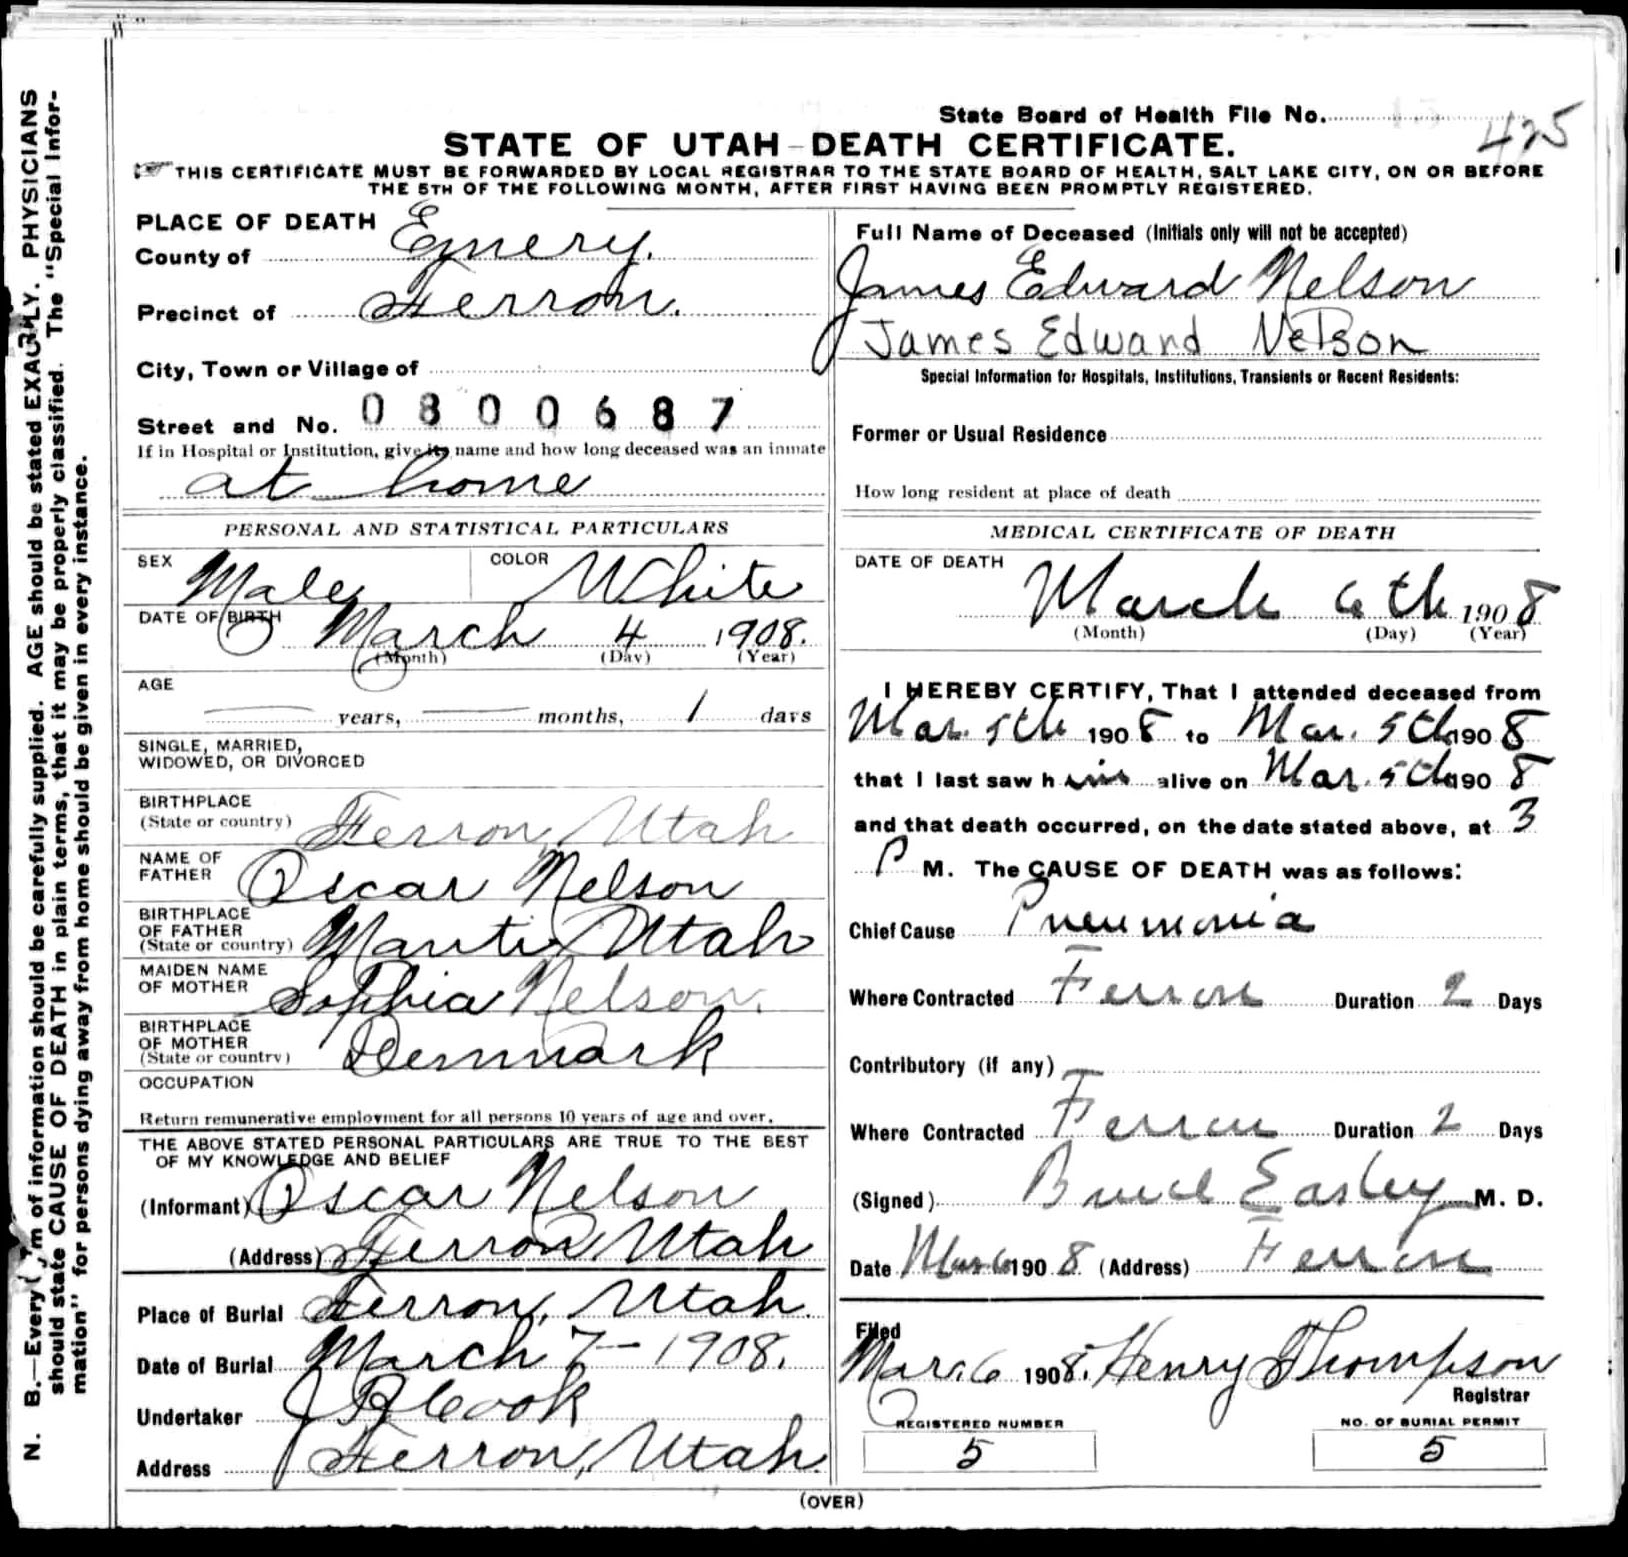 State Board of Health File No.
425
STATE OF UTAH - DEATH CERTIFICATE.
THIS CERTIFICATE MUST BE FORWARDED BY LOCAL REGISTRAR TO THE STATE BOARD OF HEALTH, SALT LAKE CITY, ON OR BEFORE
THE 5TH OF THE FOLLOWING MONTH, AFTER FIRST HAVING BEEN PROMPTLY REGISTERED.
PLACE OF DEATH
County of Emery.
Precinct of Ferron.
City, Town or Village of
Street and No. 0800687
If in Hospital or Institution, give its name and how long deceased was an inmate
at home
PERSONAL AND STATISTICAL PARTICULARS
SEX Male COLOR White
DATE OF BIRTH March 4 1908.
(Month) (Day) (Year)
AGE
years, months, 1 days
SINGLE, MARRIED,
WIDOWED, OR DIVORCED
BIRTHPLACE
(State or country) Ferron, Utah
NAME OF
FATHER Oscar Nelson
BIRTHPLACE
OF FATHER
(State or country) Manti Utah
MAIDEN NAME
OF MOTHER Sophia Nelson.
BIRTHPLACE
OF MOTHER
(State or country) Denmark
OCCUPATION
Return remunerative employment for all persons 10 years of age and over.
THE ABOVE STATED PERSONAL PARTICULARS ARE TRUE TO THE BEST
OF MY KNOWLEDGE AND BELIEF
(Informant) Oscar Nelson
(Address) Ferron Utah
Place of Burial Ferron, Utah.
Date of Burial March 7 - 1908.
Undertaker J Cook
Address Ferron, Utah.
Full Name of Deceased (Initials only will not be accepted)
James Edward Nelson
James Edward Nelson
Special Information for Hospitals, Institutions, Transients or Recent Residents:
Former or Usual Residence
How long resident at place of death
MEDICAL CERTIFICATE OF DEATH
DATE OF DEATH
March 6th 1908
(Month) (Day) (Year)
I HEREBY CERTIFY, That I attended deceased from
Mar. 5th 1908 to Mar. 5th 1908
that I last saw him alive on Mar. 5th 1908
and that death occurred, on the date stated above, at 3
P M. The CAUSE OF DEATH was as follows:
Chief Cause Pneumonia
Where Contracted Ferron Duration 2 Days
Contributory (if any)
Where Contracted Ferron Duration 2 Days
(Signed) Bruce Easley M. D.
Date Mar 6 1908 (Address) Ferron
Filed
Mar. 6 1908. Henry Thompson
Registrar
REGISTERED NUMBER
5
NO. OF BURIAL PERMIT
5
(OVER)
N. B.—Every item of information should be carefully supplied. AGE should be stated EXACTLY. PHYSICIANS
should state CAUSE OF DEATH in plain terms, that it may be properly classified. The "Special Infor-
mation" for persons dying away from home should be given in every instance.